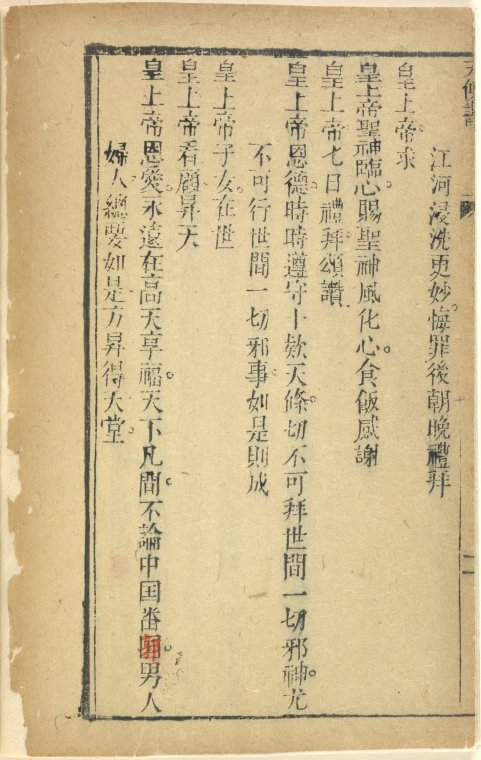 天條書
二
江河浸洗更妙。悔罪後朝晚禮拜
皇上帝。求
皇上帝聖神臨心。賜聖神風化心。食飯感謝
皇上帝。七日禮拜頌讚
皇上帝恩德。時時遵守十欵天條。切不可拜世間一切邪神。尤
不可行世間一切邪事。如是則成
皇上帝子女。在世
皇上帝看顧。昇天
皇上帝恩愛。永遠在高天享福。天下凡間。不論中囯番。男人
婦人。總要如是。方昇得天堂。